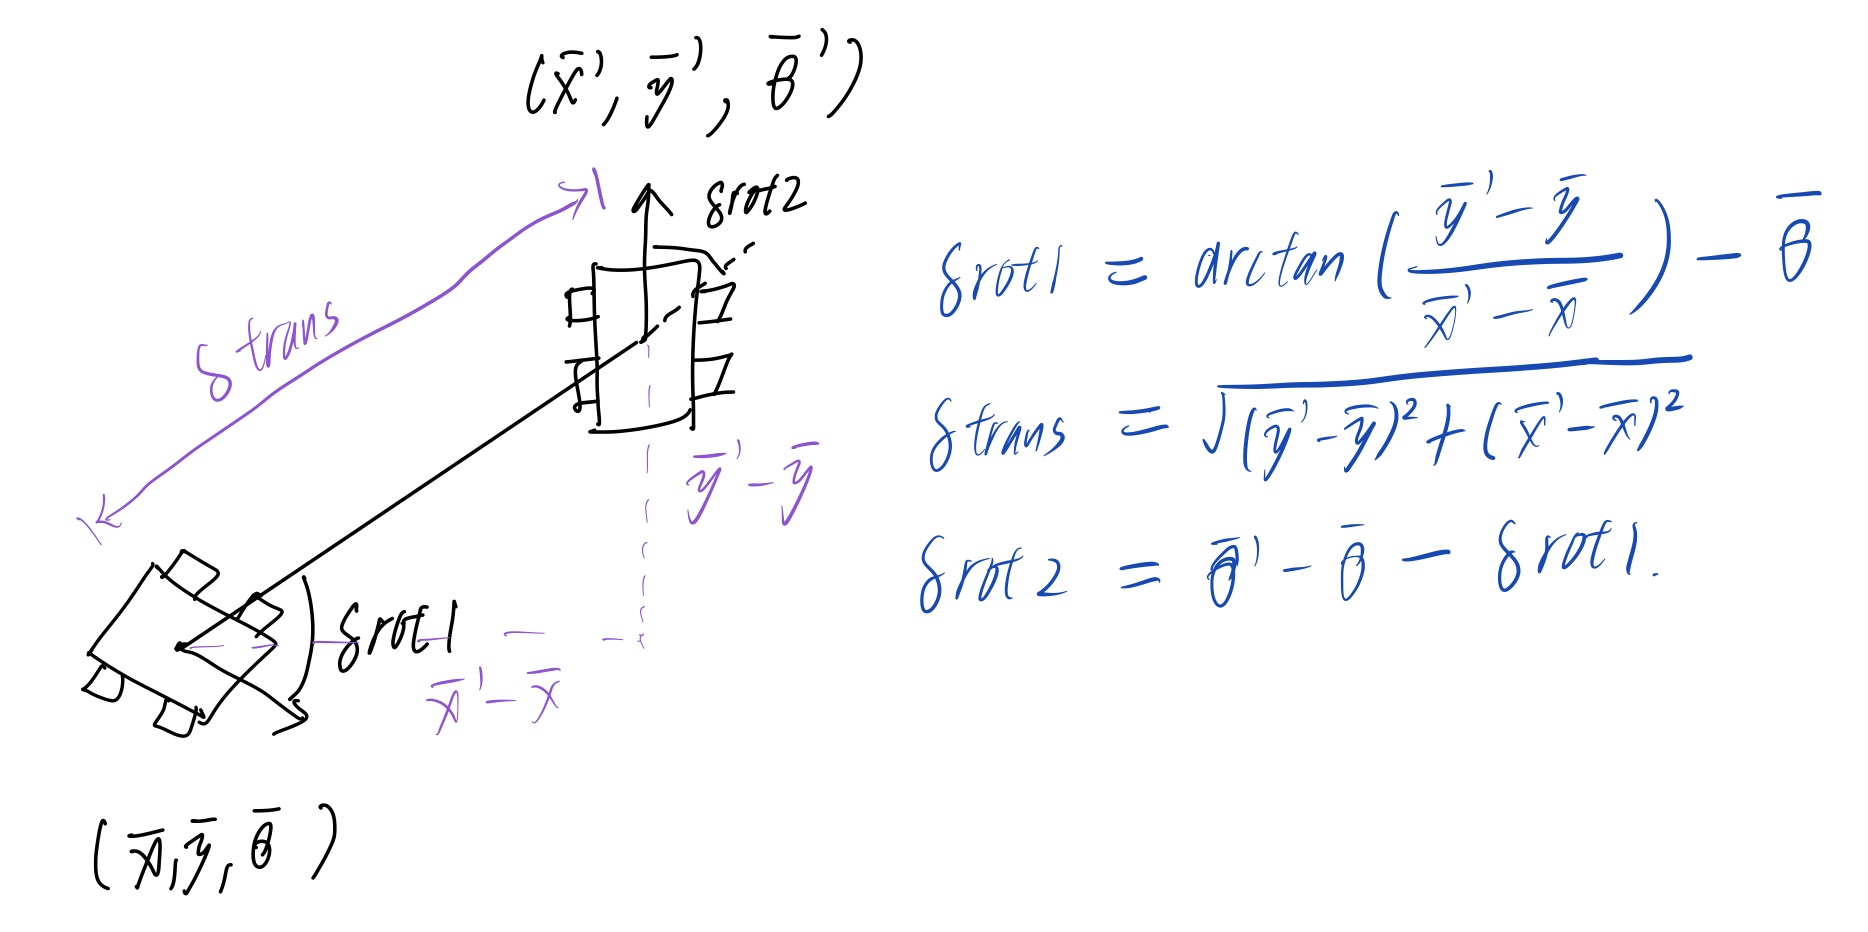 (x̄', ȳ', θ̄')
δrot2
δtrans
ȳ' - ȳ
δrot1
x̄' - x̄
(x̄, ȳ, θ̄)
δrot1 = arctan((ȳ' - ȳ)/(x̄' - x̄)) - θ̄
δtrans = √((ȳ' - ȳ)² + (x̄' - x̄)²)
δrot2 = θ̄' - θ̄ - δrot1.